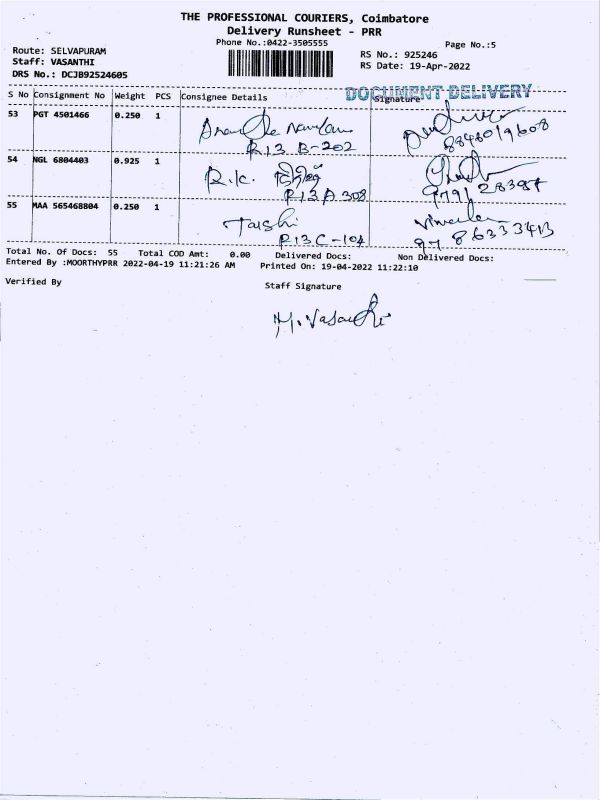 THE PROFESSIONAL COURIERS, Coimbatore
Delivery Runsheet - PRR
Phone No.:0422-3505555
Page No.:5
Route: SELVAPURAM
Staff: VASANTHI
DRS No.: DCJB92524605
RS No.: 925246
RS Date: 19-Apr-2022
DOCUMENT DELIVERY
S No Consignment No Weight PCS Consignee Details Signature
53 PGT 4501466 0.250 1
R13 B-202
54 NGL 6804403 0.925 1 R.K.
R13 A 308
55 MAA 565468804 0.250 1 Taishi
R13 C-104
Total No. Of Docs: 55 Total COD Amt: 0.00 Delivered Docs: Non Delivered Docs:
Entered By :MOORTHYPRR 2022-04-19 11:21:26 AM Printed On: 19-04-2022 11:22:10
Verified By Staff Signature
M. Vasanthi